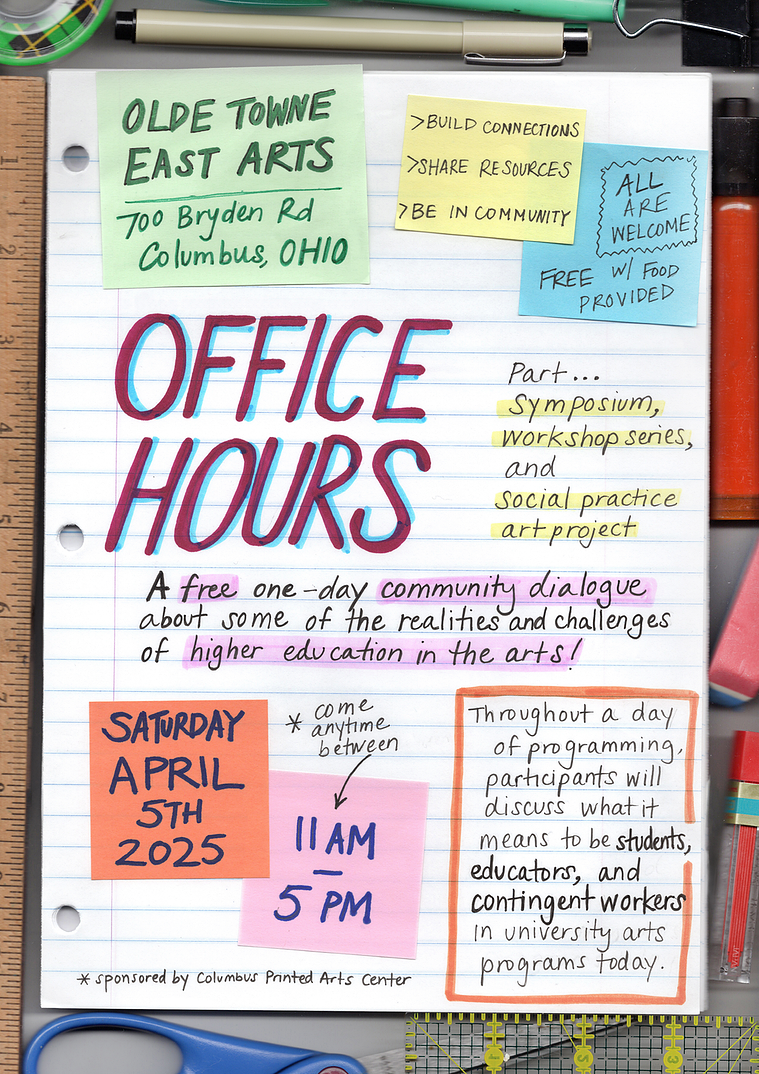 OLDE TOWNE
EAST ARTS
700 Bryden Rd
Columbus, OHIO
>BUILD CONNECTIONS
>SHARE RESOURCES
>BE IN COMMUNITY
ALL
ARE
WELCOME
FREE W/ FOOD
PROVIDED
OFFICE
HOURS
Part...
Symposium,
workshop series,
and
social practice
art project
A free one-day community dialogue
about some of the realities and challenges
of higher education in the arts!
SATURDAY
APRIL
5TH
2025
* come
anytime
between
11 AM
–
5 PM
Throughout a day
of programming,
participants will
discuss what it
means to be students,
educators, and
contingent workers
in university arts
programs today.
* sponsored by Columbus Printed Arts Center
1
2
3
4
5
6
7